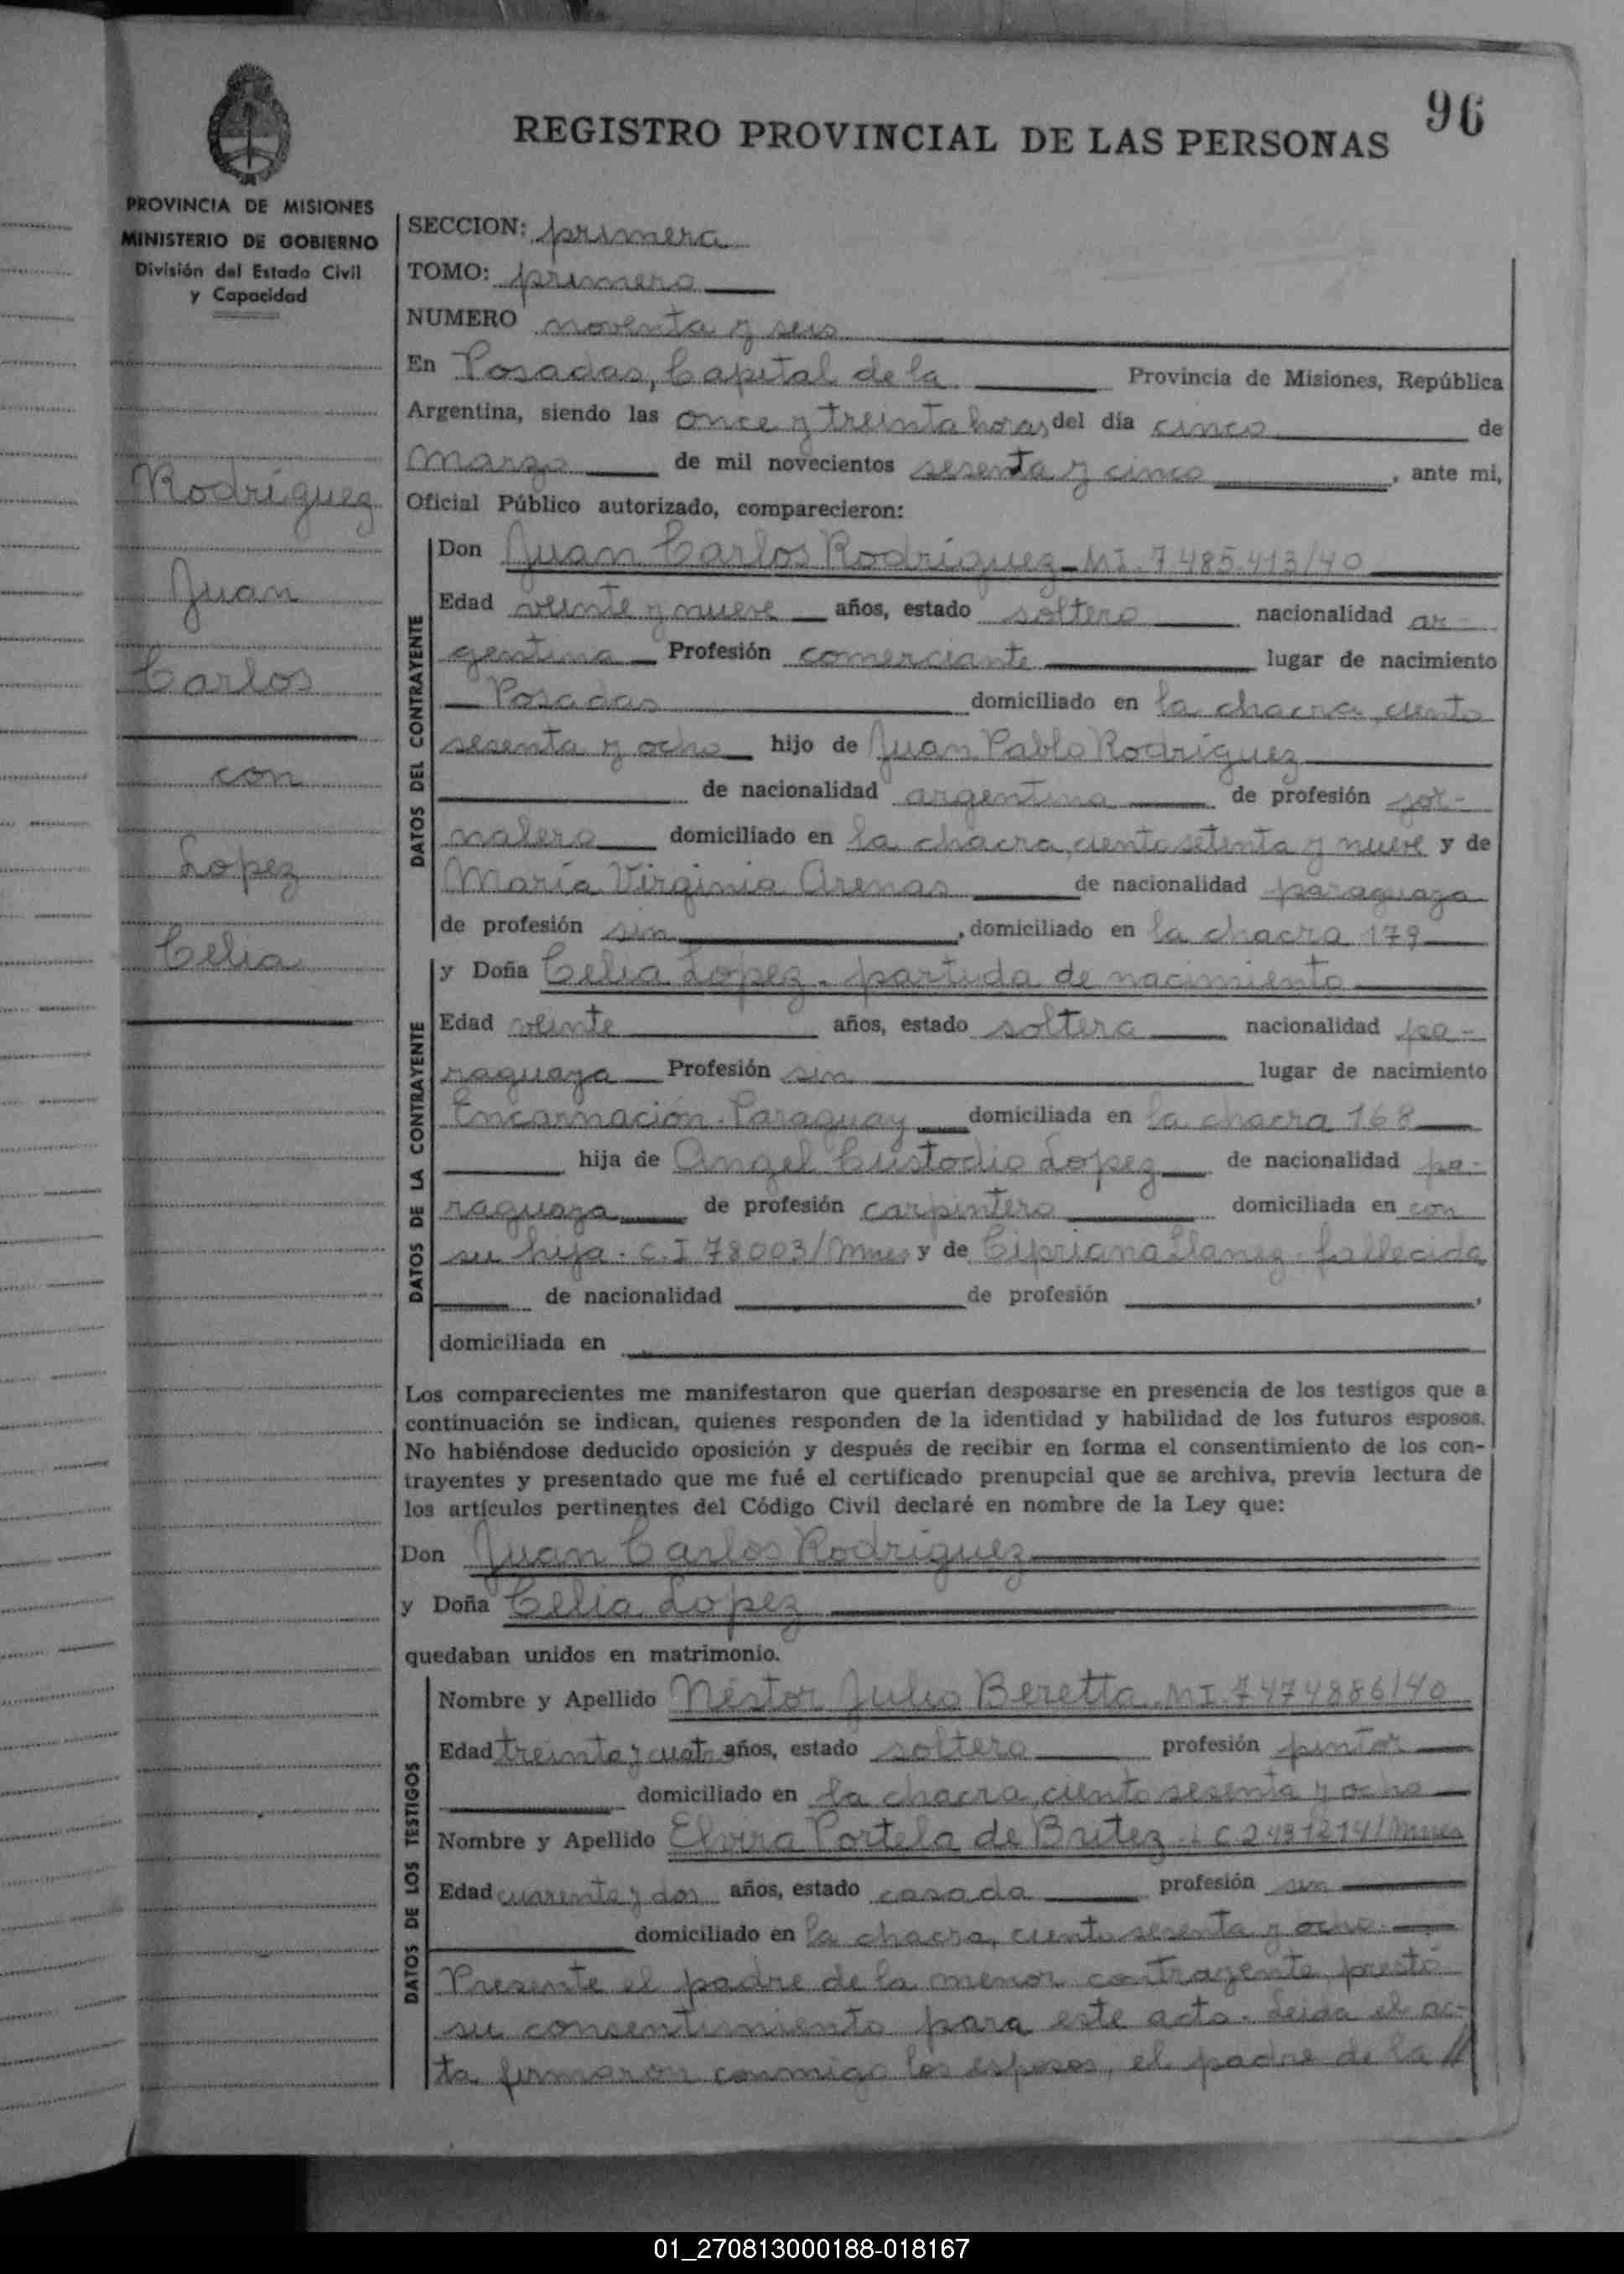 96
REGISTRO PROVINCIAL DE LAS PERSONAS
PROVINCIA DE MISIONES
MINISTERIO DE GOBIERNO
División del Estado Civil
y Capacidad
Rodríguez
Juan
Carlos
con
Lopez
Celia
SECCION: primera
TOMO: primero
NUMERO noventa y seis
En Posadas, Capital de la Provincia de Misiones, República
Argentina, siendo las once y treinta horas, del día cinco de
marzo de mil novecientos sesenta y cinco, ante mi,
Oficial Público autorizado, comparecieron:
DATOS DEL CONTRAYENTE
Don Juan Carlos Rodríguez - M.I. 7.485.413/40
Edad veinte y nueve años, estado soltero nacionalidad ar-
gentina Profesión comerciante lugar de nacimiento
Posadas domiciliado en la chacra ciento
sesenta y ocho hijo de Juan Pablo Rodríguez
de nacionalidad argentina de profesión jor-
nalero domiciliado en la chacra, ciento setenta y nueve y de
María Virginia Arenas de nacionalidad paraguaya
de profesión sin, domiciliado en la chacra 179
DATOS DE LA CONTRAYENTE
y Doña Celia Lopez - partida de nacimiento
Edad veinte años, estado soltera nacionalidad pa-
raguaya Profesión sin lugar de nacimiento
Encarnación - Paraguay domiciliada en la chacra 168
hija de Angel Custodio Lopez de nacionalidad pa-
raguaya de profesión carpintero domiciliada en con
su hija. C.I 78003/Mnes y de Cipriana Llanez - fallecida
de nacionalidad de profesión,
domiciliada en
Los comparecientes me manifestaron que querían desposarse en presencia de los testigos que a
continuación se indican, quienes responden de la identidad y habilidad de los futuros esposos.
No habiéndose deducido oposición y después de recibir en forma el consentimiento de los con-
trayentes y presentado que me fué el certificado prenupcial que se archiva, previa lectura de
los artículos pertinentes del Código Civil declaré en nombre de la Ley que:
Don Juan Carlos Rodríguez
y Doña Celia Lopez
quedaban unidos en matrimonio.
DATOS DE LOS TESTIGOS
Nombre y Apellido Néstor Julio Beretta. M.I. 7474886/40
Edad treinta y cuatro años, estado soltero profesión pintor
domiciliado en la chacra, ciento sesenta y ocho
Nombre y Apellido Elvira Portela de Britez. L C. 2431214/Mnes
Edad cuarenta y dos años, estado casada profesión sin
domiciliado en la chacra, ciento sesenta y ocho.
Presente el padre de la menor contrayente, prestó
su consentimiento para este acto. Leida el ac-
ta firmaron conmigo los esposos, el padre de la //
01_270813000188-018167